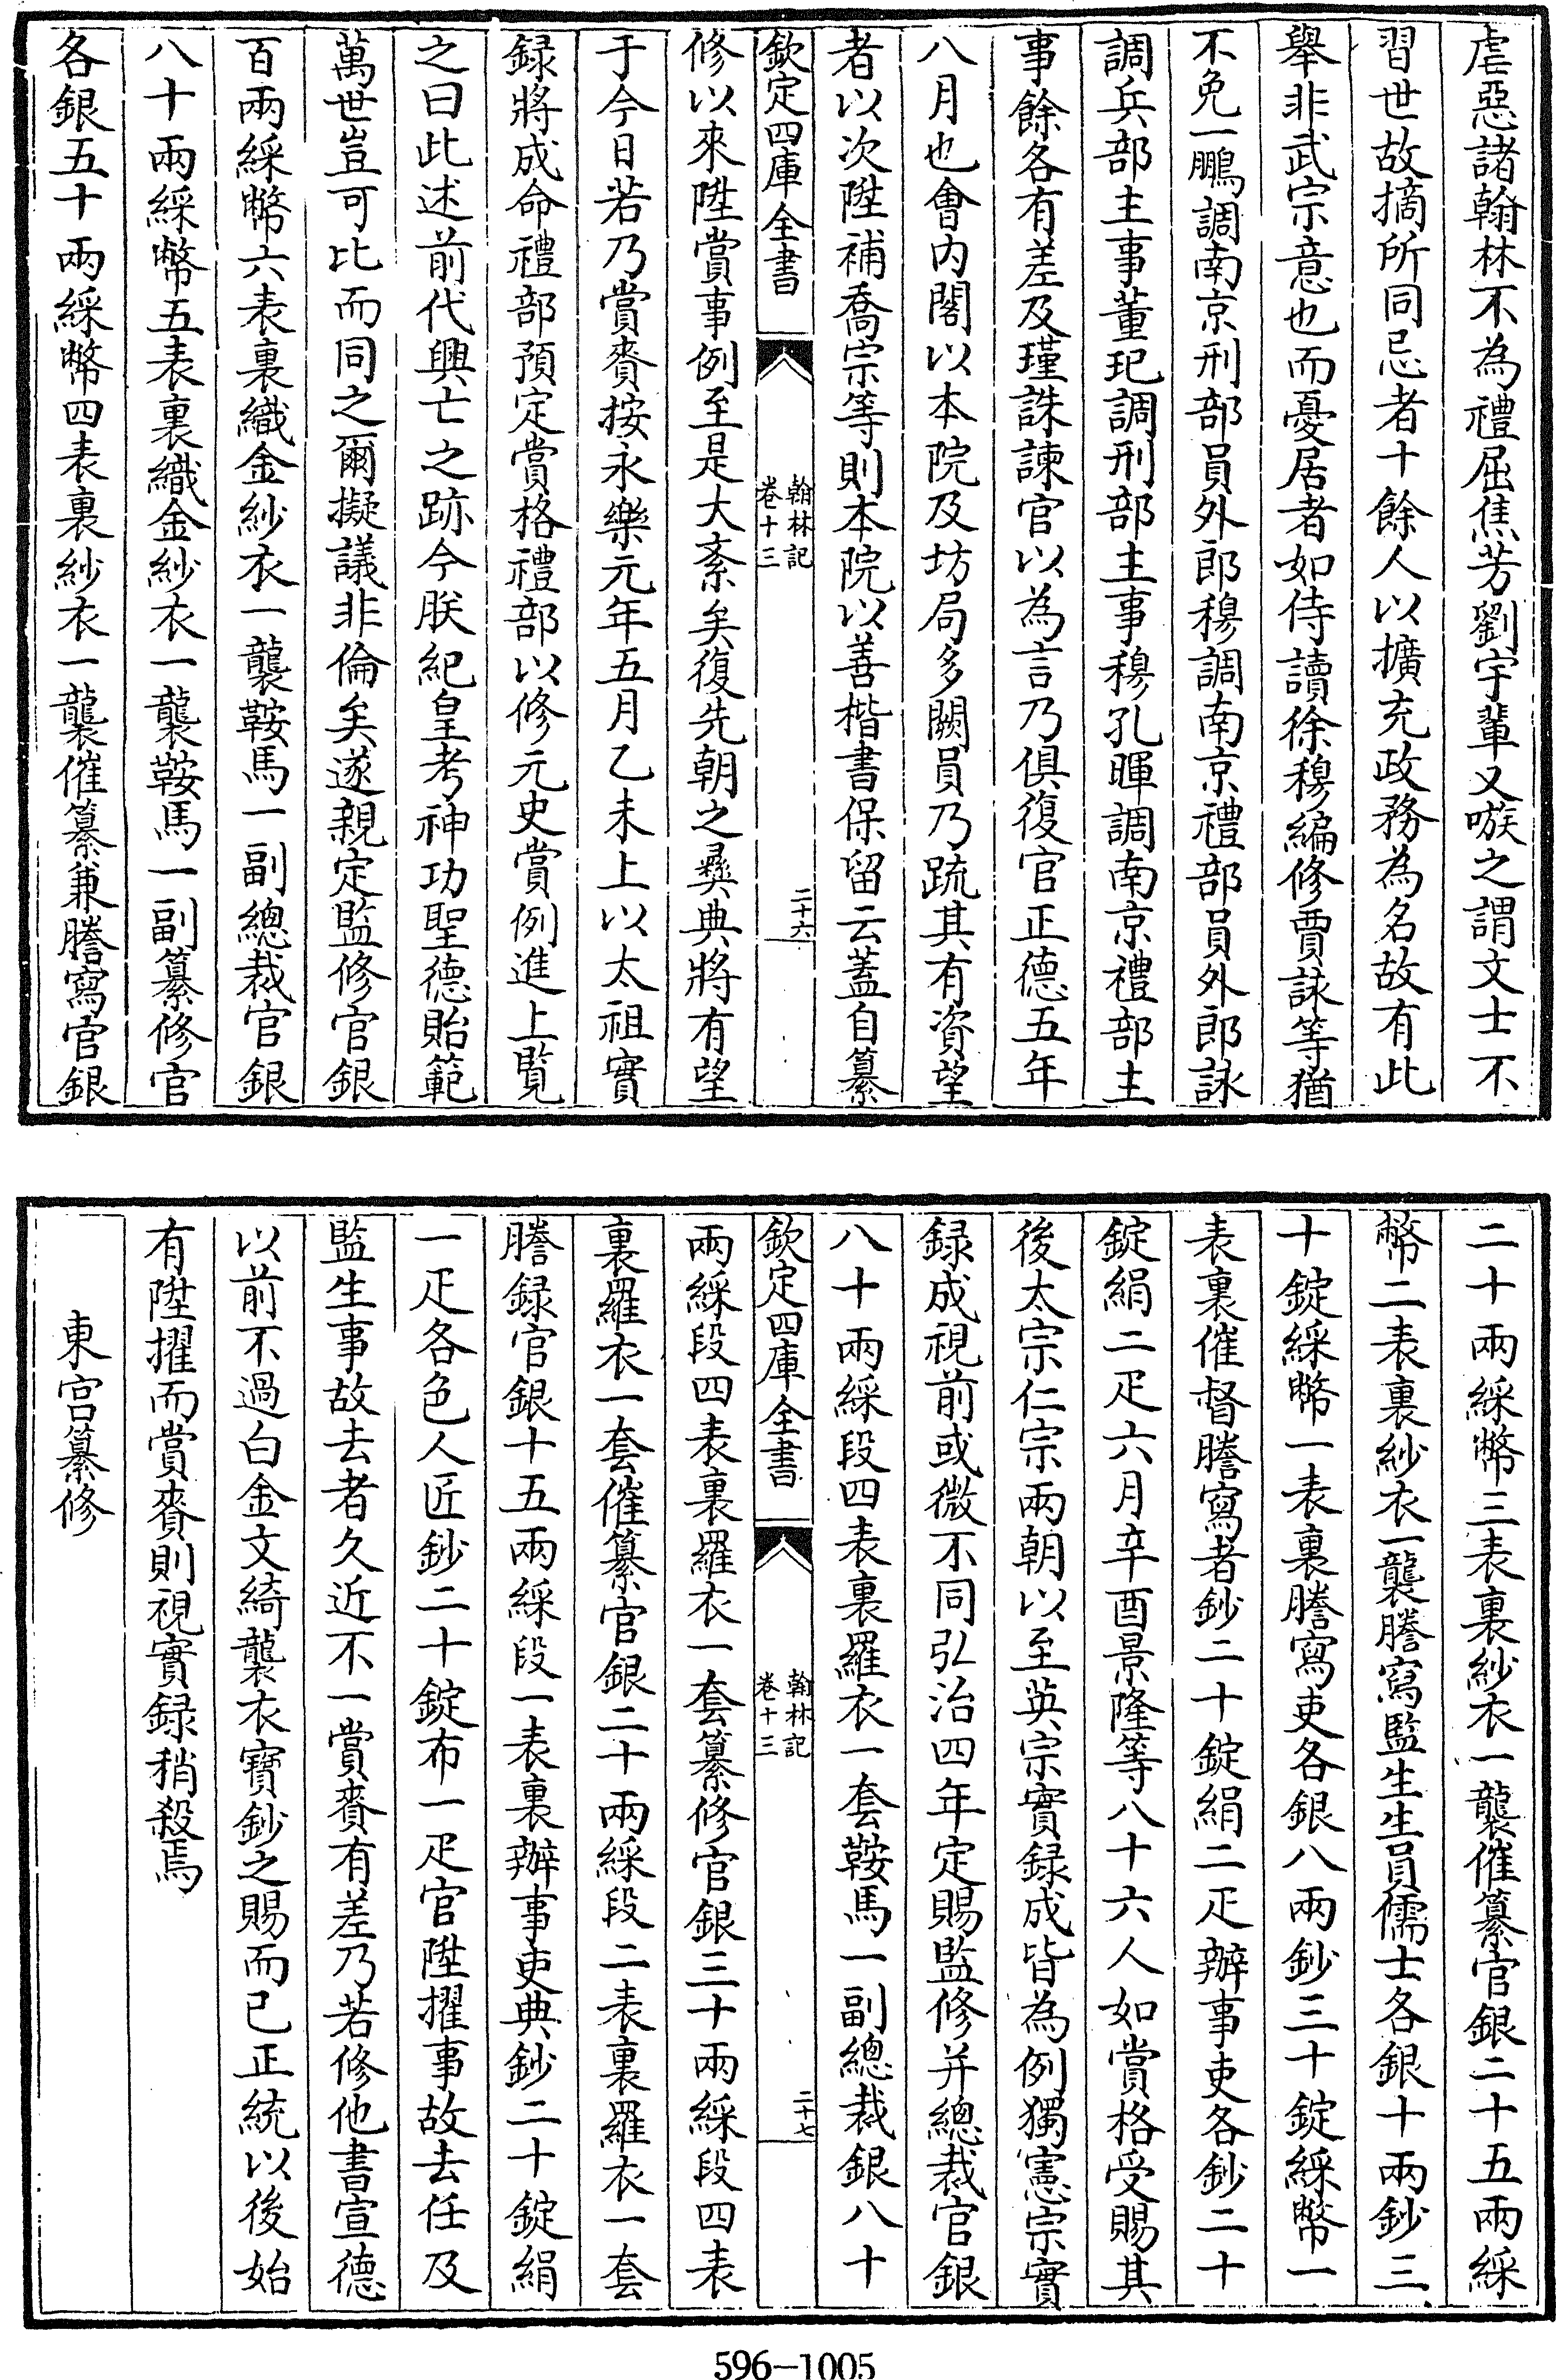 虐惡諸翰林不為禮屈焦芳劉宇輩又嗾之謂文士不
習世故摘所同忌者十餘人以擴充政務為名故有此
舉非武宗意也而憂居者如侍讀徐穆編修賈詠等猶
不免一鵬調南京刑部員外郎穆調南京禮部員外郎詠
調兵部主事董玘調刑部主事穆孔暉調南京禮部主
事餘各有差及瑾誅諫官以為言乃俱復官正德五年
八月也會内閣以本院及坊局多闕員乃疏其有資望
者以次陞補喬宗等則本院以善楷書保留云蓋自纂
欽定四庫全書
翰林記
卷十三
二十六
修以來陞賞事例至是大紊矣復先朝之彛典將有望
于今日若乃賞賚按永樂元年五月乙未上以太祖實
録將成命禮部預定賞格禮部以修元史賞例進上覽
之曰此述前代興亡之跡今朕紀皇考神功聖德貽範
萬世豈可比而同之爾擬議非倫矣遂親定監修官銀
百兩綵幣六表裏織金紗衣一襲鞍馬一副總裁官銀
八十兩綵幣五表裏織金紗衣一襲鞍馬一副纂修官
各銀五十兩綵幣四表裏紗衣一襲催纂兼謄寫官銀
二十兩綵幣三表裏紗衣一襲催纂官銀二十五兩綵
幣二表裏紗衣一襲謄寫監生生員儒士各銀十兩鈔三
十錠綵幣一表裏謄寫吏各銀八兩鈔三十錠綵幣一
表裏催督謄寫者鈔二十錠絹二疋辦事吏各鈔二十
錠絹二疋六月辛酉景隆等八十六人如賞格受賜其
後太宗仁宗兩朝以至英宗實録成皆為例獨憲宗實
録成視前或微不同弘治四年定賜監修并總裁官銀
八十兩綵段四表裏羅衣一套鞍馬一副總裁銀八十
欽定四庫全書
翰林記
卷十三
二十七
兩綵段四表裏羅衣一套纂修官銀三十兩綵段四表
裏羅衣一套催纂官銀二十兩綵段二表裏羅衣一套
謄録官銀十五兩綵段一表裏辦事吏典鈔二十錠絹
一疋各色人匠鈔二十錠布一疋官陞擢事故去任及
監生事故去者久近不一賞賚有差乃若修他書宣德
以前不過白金文綺襲衣寶鈔之賜而已正統以後始
有陞擢而賞賚則視實録稍殺焉
東宫纂修
596-1005